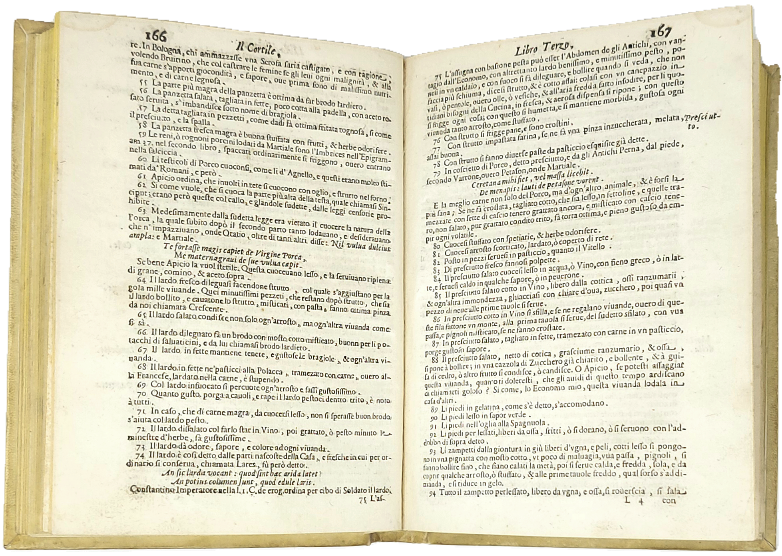 166 Il Cortile.
re. In Bologna, chi ammazzasse vna Scrofa saria castigato, e con ragione
volendo Bruirino, che col castrare le femine se gli leui ogni malignità, & alla
sua carne s'apporti giocondità, e sapore, oue prima sono di malissimo nutri-
mento, e di carne legnosa.
55 La parte più magra della panzetta è ottima da far brodo lardiero.
56 La panzetta salata, tagliata in fette, poco cotta alla padella, con aceto ro-
sato seruita, s'imbandisce sotto nome di bragiola.
57 La detta tagliata in pezzetti, come dadi fà ottima frittata rognosa, sì come
il presciutto, e la spalla.
58 La panzetta fresca magra è buona stuffata con frutti, & herbe odorifere.
59 Le reni, ò rognoni porcini lodati da Martiale sono l'Imbrices nell'Epigram-
am 37. nel secondo libro, spaccati ordinariamente si friggono, ouero entrano
nella salciccia.
60 I testicoli di Porco cuoconsi, come li d'Agnello, e questi etano molto sti-
mati da' Romani, e però.
61 Apicio ordina, che inuolti in rete si cuocano con oglio, e strutto nel forno.
62 Si come vuole, che si cuoca la parte più alta della testa, quale chiamasi Sin-
cipur; erano però queste col callo, e glandole sudette, dalle leggi censorie pro-
hibite.
63 Medesimamente dalla sudetta legge era vietato il cuocere la natura della
Porca, la quale subito dopò il secondo parto tanto lodauano, e desiderauano
che n'impazziuano, onde Oratio, oltre di tanti altri disse: Nil vulua dulcius
ampla: e Martiale.
Te fortasse magis capiet de Virgine Porca,
Me materna graui de sue vulua capit.
Se bene Apicio la vuol sterile. Questa cuoceuano lesso, e la seruiuano ripiena
di grane, comino, & aceto sopra.
64 Il lardo fresco dileguasi facendone strutto, col quale s'aggiustano per la
gola mille viuande. Quei minutissimi pezzetti, che restano dopò strutto, che sia
il lardo bollito, e cauatone lo strutto, misticati, con pasta, fanno ottima pinza,
da noi chiamata Crescente.
65 Il lardo salato condisce non solo ogn'arrosto, ma ogn'altra viuanda come
si sà.
66 Il lardo dilegnato fà un brodo con mosto cotto misticato, buono per li po-
tacchi di saluaticini, e da lui chiamasi brodo lardiero.
67 Il lardo in fette mantiene tenere, e gustose le bragiole, & ogn'altra vi-
uanda.
68 Il lardo in fette ne'pasticci alla Polacca, tramezato con carne, ouero al-
la Francese, lardato nella carne, è stupendo.
69 Col lardo infuocato si percuote ogn'arrosto e fassi gustosissimo.
70 Quanto gusto, porga a cauoli, e rape il lardo pestoci dentro trito, è noto
à tutti.
71 In caso, che di carne magra, da cuocersi lesso, non si sperasse buon brodo
s'aiuta col lardo pesto.
72 Il lardo dissalato col farlo star in Vino, poi grattato, ò pesto minuto le
minestre d'herbe, fà gustosissime.
73 Il lardo dà odore, sapore, e colore ad ogni viuanda.
74 Il lardo è così detto dalle parti nascoste della Casa, e fisiche in cui per or-
dinario si conserua, chiamata Lares, fù però detto.
An sic larda vocant: quod sint hæc arida lares?
An potius columen sunt, quod edule laris.
Constantine Imperatore nella l. 1. C. de erog. ordina per cibo di Soldato il lardo.
75 L'as-
Libro Terzo. 167
75 L'assogna con bastone pesta può esser l'Abdomen de gli Antichi, con van-
taggio dall'Economo, con altrettanto lardo benissimo, e minutissimo pesto, po-
sti in vn caldaio, e con fuoco si fà dileguare, e bollire quando si veda, che non
faccia più schiuma, dicesi strutto, & è coso assai: colasi con vn canepazzo in
vasi, ò pentole, ouero olle, ò vesiche, & all'aria fredda fatto insodire, per li quo-
tidiani bisogni della Cucina, in fresca, & aerosa dispensa si ripone; con questo
si frigge ogni cosa; con questo si humetta, e si mantiene morbida, gustosa ogni
viuanda tanto arrosto, come stuffato.
76 Con strutto si frigge pane, e sono crostini.
77 Con strutto impastata farina, se ne fà vna pinza inzuccherata, melata,
assai buona.
78 Con strutto si fanno diuerse paste da pasticcio esquisite già dette.
79 In cosciretto di Porco, detto presciutto, e da gli Antichi Perna, dal piede,
secondo Varrone, ouero Petason, onde Martiale.
Presciut
to.
Cæretana mihi fiet, vel massa licebit.
De menapis: lauti de petasone vorent.
E la meglio carne non solo del Porco, ma d'ogn'altro animale, & è forsi la
più sana; Se ne fà crollata, tagliato cotto, che sia lesso, in fettoline, e quelle tra-
mezzate con fette di cascio tenero grattato ancora, e misticato con cascio tene-
ro, non salato, pur grattato condito trito, fà torta ottima, e pieno gustoso da em-
pir ogni volatile.
80 Cuocesi stuffato con spetiarie, & herbe odorifere.
81 Cuocesi arrosto scorticato, lardato, ò coperto di rete.
82 Posto in pezzi seruesi in pasticcio, quanto il Vitello.
83 Di presciutto fresco fannosi polpette.
84 Il presciutto salato cuocesi lesso in acqua, ò Vino, con fieno greco, ò in lat-
te, e seruesi caldo in qualche sapore, ò in peuerone.
85 Il presciutto salato cotto in Vino, e leso, libero dalla cottica, ossi ranzumarii,
& ogn'altra immondezza, pilucciasi con chiare d'oua, zuccchero, poi quasi vn
pezzo di neue alle prime tauole si serue.
86 In presciutto cotto in Vino si sfilla, e se ne regalano viuande, ouero di que-
ste fila fattone vn monte, alla prima tauola si serue, del sudetto sfilato, con vua
passa, e pignoli misticato, se ne fanno crostate.
87 In presciutto salato, tagliato in fette, tramezato con carne in vn pasticcio,
porge gustosi sapore.
88 Il presciutto salato, netto di cotica, grascïume ranzumario, & ossa,
si pone à bollire; in vna cazzola di Zucchero già chiarito, e bollente, & à gui-
sa di cedro, ò altro frutto si condisce, ò candisce. O Apicio, se potesti assaggiar
questa viuanda, quanto ti doleresti, che gli auidi di questo tempo ardiscano
chiamarti goloso? Si come, lo Economo mio, questa viuanda lodala in
casa d'altri.
89 Li piedi in gelatina, come s'è detto, s'accomodano.
90 Li piedi lesso in sapor verde.
91 Li piedi nell'oglia alla Spagnuola.
92 Li piedi per lessati, liberi da ossa, fritti, ò si dorano, ò si seruono con l'ad-
dobbo di sapra detto.
93 Li zampetti dalla giontura in giù liberi d'vgna, e peli, cotti lesso si pongo-
no in vna pignatta con mosto cotto, vn poco di maluagia, vua passa, pignoli, si
fanno bollire sino, che siano calati la metà, poi si serue calda, e fredda, sola, e da
coprir qualche arrosto, ò stuffato, & alle prime tauole freddo, qual sorso s'ad di-
manda, e si riduce in gelo.
94 Tutto il zampetto per lessato, libero da vgna, e ossa, si rouerscia, si sala
L 4 con